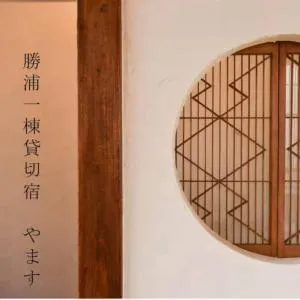 勝浦一棟貸切宿　やます